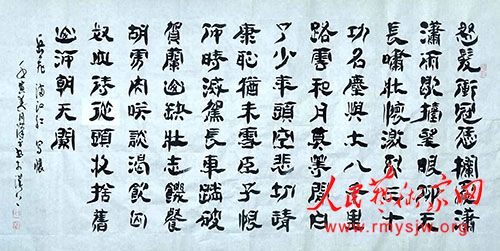 怒髮衝冠憑欄處瀟
瀟雨歇擡望眼仰天
長嘯壯懷激烈三十
功名塵與土八千里
路雲和月莫等閒白
了少年頭空悲切靖
康恥猶未雪臣子恨
何時滅駕長車踏破
賀蘭山缺壯志饑餐
胡虜肉笑談渴飲匈
奴血待從頭收拾舊
山河朝天闕
岳飛 滿江紅 寫懷
人民艺术家网
www.rmysjw.org